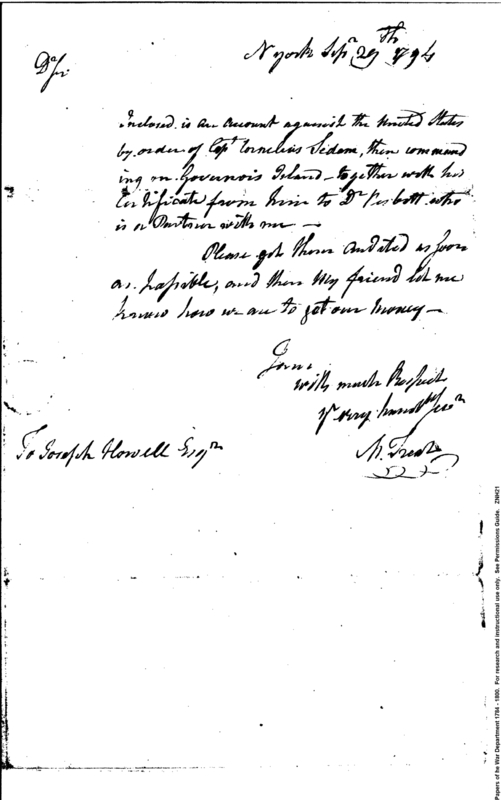 N york Sepr 29th 1794
Dr Sir
Inclosed is an account against the United States
by order of Capt Cornelius Sedam, then command
ing on Governors Island – together with his
Certificate from him to Dr who
is a Partner with me –
Please get them audited as soon
as possible, and then My friend let me
know how we are to get our Money –
I am
with much Respect
Yr very humble Servt
M. Treat
To Joseph Howell Esqr
Papers of he War Department 1784 - 1800. For research and instructional use only. See Permissions Guide. ZNH21